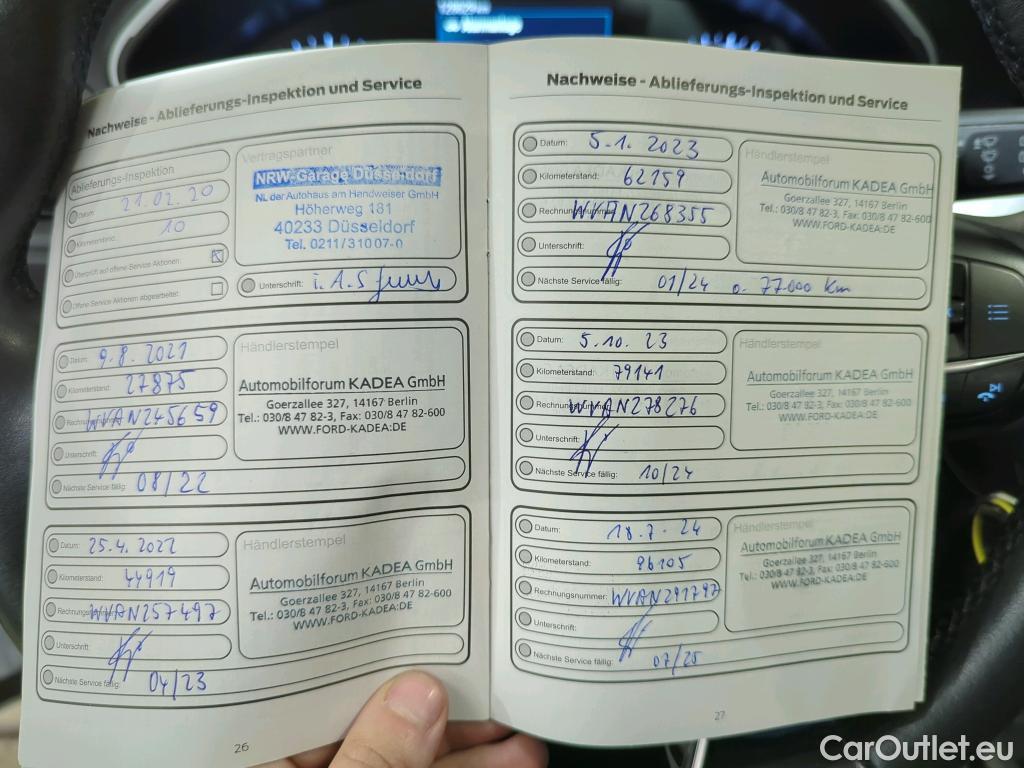 Nachweise - Ablieferungs-Inspektion und Service
Ablieferungs-Inspektion
Datum: 21.02.20
Kilometerstand: 10
Überprüft auf offene Service Aktionen:
Offene Service Aktionen abgearbeitet:
Vertragspartner
NRW-Garage Düsseldorf
NL der Autohaus am Handweiser GmbH
Höherweg 181
40233 Düsseldorf
Tel. 0211/31007-0
Unterschrift: i.A.
Datum: 9.8.2021
Kilometerstand: 27875
Rechnungsnummer: WVAN245659
Unterschrift:
Nächste Service fällig: 08/22
Händlerstempel
Automobilforum KADEA GmbH
Goerzallee 327, 14167 Berlin
Tel.: 030/8 47 82-3, Fax: 030/8 47 82-600
WWW.FORD-KADEA:DE
Datum: 25.4.2022
Kilometerstand: 44919
Rechnungsnummer: WVAN257497
Unterschrift:
Nächste Service fällig: 04/23
Händlerstempel
Automobilforum KADEA GmbH
Goerzallee 327, 14167 Berlin
Tel.: 030/8 47 82-3, Fax: 030/8 47 82-600
WWW.FORD-KADEA:DE
26
Nachweise - Ablieferungs-Inspektion und Service
Datum: 5.1.2023
Kilometerstand: 62159
Rechnungsnummer: WVAN268355
Unterschrift:
Nächste Service fällig: 01/24 o. 77.000 Km
Händlerstempel
Automobilforum KADEA GmbH
Goerzallee 327, 14167 Berlin
Tel.: 030/8 47 82-3, Fax: 030/8 47 82-600
WWW.FORD-KADEA:DE
Datum: 5.10.23
Kilometerstand: 79141
Rechnungsnummer: WVAN278276
Unterschrift:
Nächste Service fällig: 10/24
Händlerstempel
Automobilforum KADEA GmbH
Goerzallee 327, 14167 Berlin
Tel.: 030/8 47 82-3, Fax: 030/8 47 82-600
WWW.FORD-KADEA:DE
Datum: 18.7.24
Kilometerstand: 96105
Rechnungsnummer: WVAN291797
Unterschrift:
Nächste Service fällig: 07/25
Händlerstempel
Automobilforum KADEA GmbH
Goerzallee 327, 14167 Berlin
Tel.: 030/8 47 82-3, Fax: 030/8 47 82-600
WWW.FORD-KADEA:DE
27
CarOutlet.eu